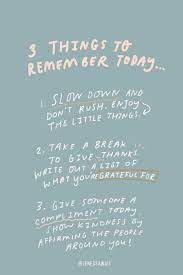 3 THINGS TO
REMEMBER TODAY...
1. SLOW DOWN AND
DON'T RUSH. ENJOY
THE LITTLE THINGS.
2. TAKE A BREAK
TO GIVE THANKS.
WRITE OUT A LIST OF
WHAT YOU'RE GRATEFUL FOR
3. GIVE SOMEONE A
COMPLIMENT TODAY.
SHOW KINDNESS BY
AFFIRMING THE PEOPLE
AROUND YOU!